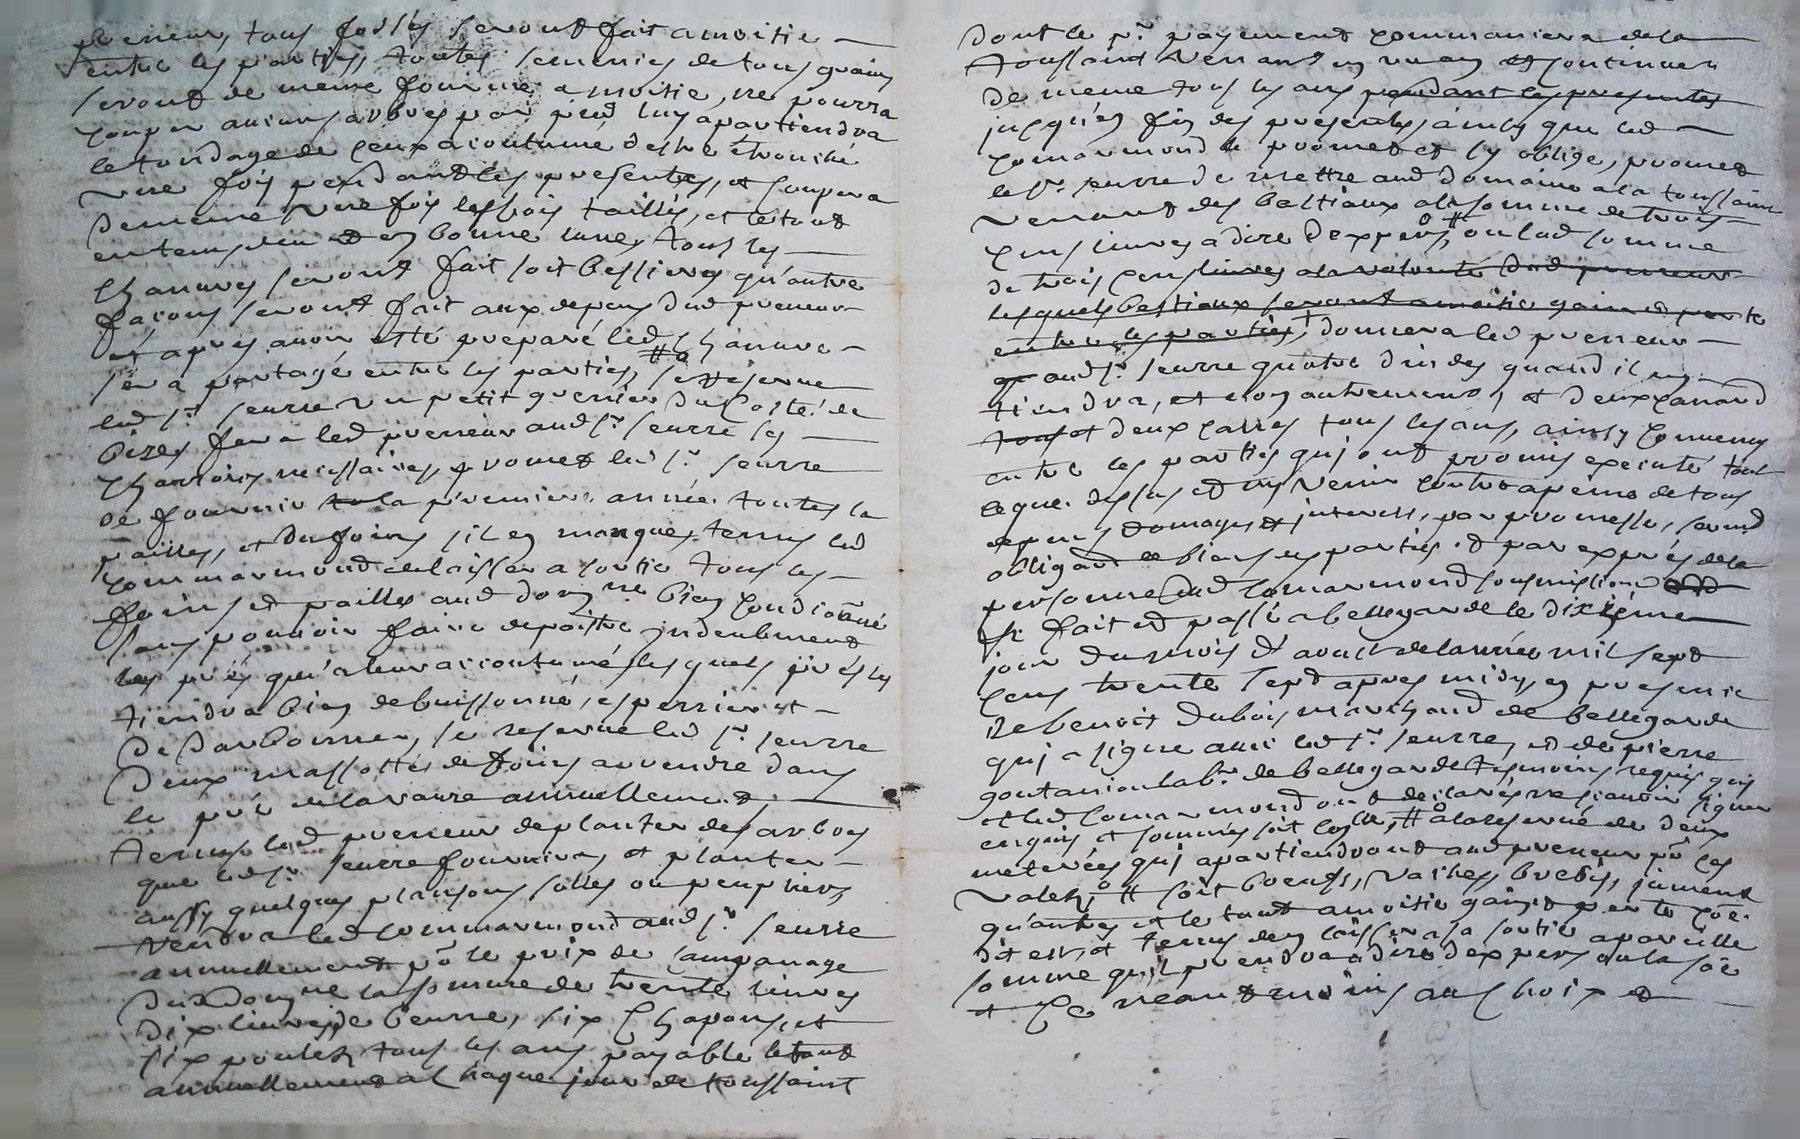 preneur, tous fossés seront fait a moitie
entre les parties, toutes semences de tous grains
seront de meme fournie a moitie, ne pourra
couper aucuns arbres par pied luy apartiendra
le tondage de ceux acoutumé destre étronché
une fois pendant les presentes, et coupera
de meme une fois les bois taillis, et le tout
en tems deu et en bonne lune, tous les
chanvres seront fait soit bessieres qu'autre
façons seront fait aux depens dud preneur
et apres avoir esté preparé led chanvre
sera partagé entre les parties, # se reserve
led sr. seurre un petit grenier du costé de
bize, fera led preneur aud sr. seurre les
charrois necessaires, promet led sr. seurre
de fournir la premiere année toutes la
pailles, et du foins s'il en manque, tenus led
commarmond de laisser a sortie tous les
foins et pailles aud domne bien condionné
sans pouvoir faire depaistre indeubment
les prés qu'a leur accoutumé, lesquels prés les
tiendra bien debuissonné, esperriere et
de darbonner, se reserve led sr. seurre
deux massottes de foins a prendre dans
le pré de lavaure annuellement,
tenus led preneur de planter des arbres
que led sr. seurre fournira et planter
aussy quelques plansons solles ou peupliers,
rendra led commarmond aud sr. seurre
annuellement pr le prix de lampanage
dud domne la somme de trente livres
dix livres de beurre, six chapons, et
six poulets tous les ans payable le tout
annuellement a chaque jour de toussaint
dont le pr. payement commancera de la
toussaint venant en un an et continuer
de meme tous les ans pendant les presentes
jusqu'en fin des presentes, ainsy que led
comarmond le promet et sy oblige, promet
le sr. seurre de mettre aud domaine a la toussaint
venant des bestiaux a la somme de trois
cens livres a dire d'expers, # ou lad somme
de trois cens livres a la volonté dud preneur
lesquels bestiaux seront a moitie gain et perte
entre les parties, donnera led preneur
aud sr. seurre quatre dindes quand il en
tiendra, et non autrement, et deux canard
tous et deux cannes tous les ans, ainsy convenus
entre les parties qui ont promis executé tout
ce que dessus et ny venir contre a peine de tous
depens domages et interests, par promesse, serment
obligant de biens des parties et par exprès de la
personne dud comarmond soumissions
&c. fait et passé a bellegarde le dixiéme
jour du mois d'avril de lannée mil sept
cens trente sept apres midy, en presence
de benoit dubois marchand de bellegarde
qui a signé avec led sr. seurre, et de pierre
goutanion labr. de bellegarde tesmoins requis, qui
et led comarmond ont declarés ne scavoir signer
enquis, et sommés soit colle, # a la reserve de deux
meterées qui apartiendront aud preneur pr les
valets, # soit boeufs, vaches, brebis, jument
qu'autres et le tout a moitie gain et perte coe.
dit est, et tenus d'en laisser a sa sortie a pareille
somme qu'il prendra a dire d'expers ou la soe
et &c neantmoins au choix d